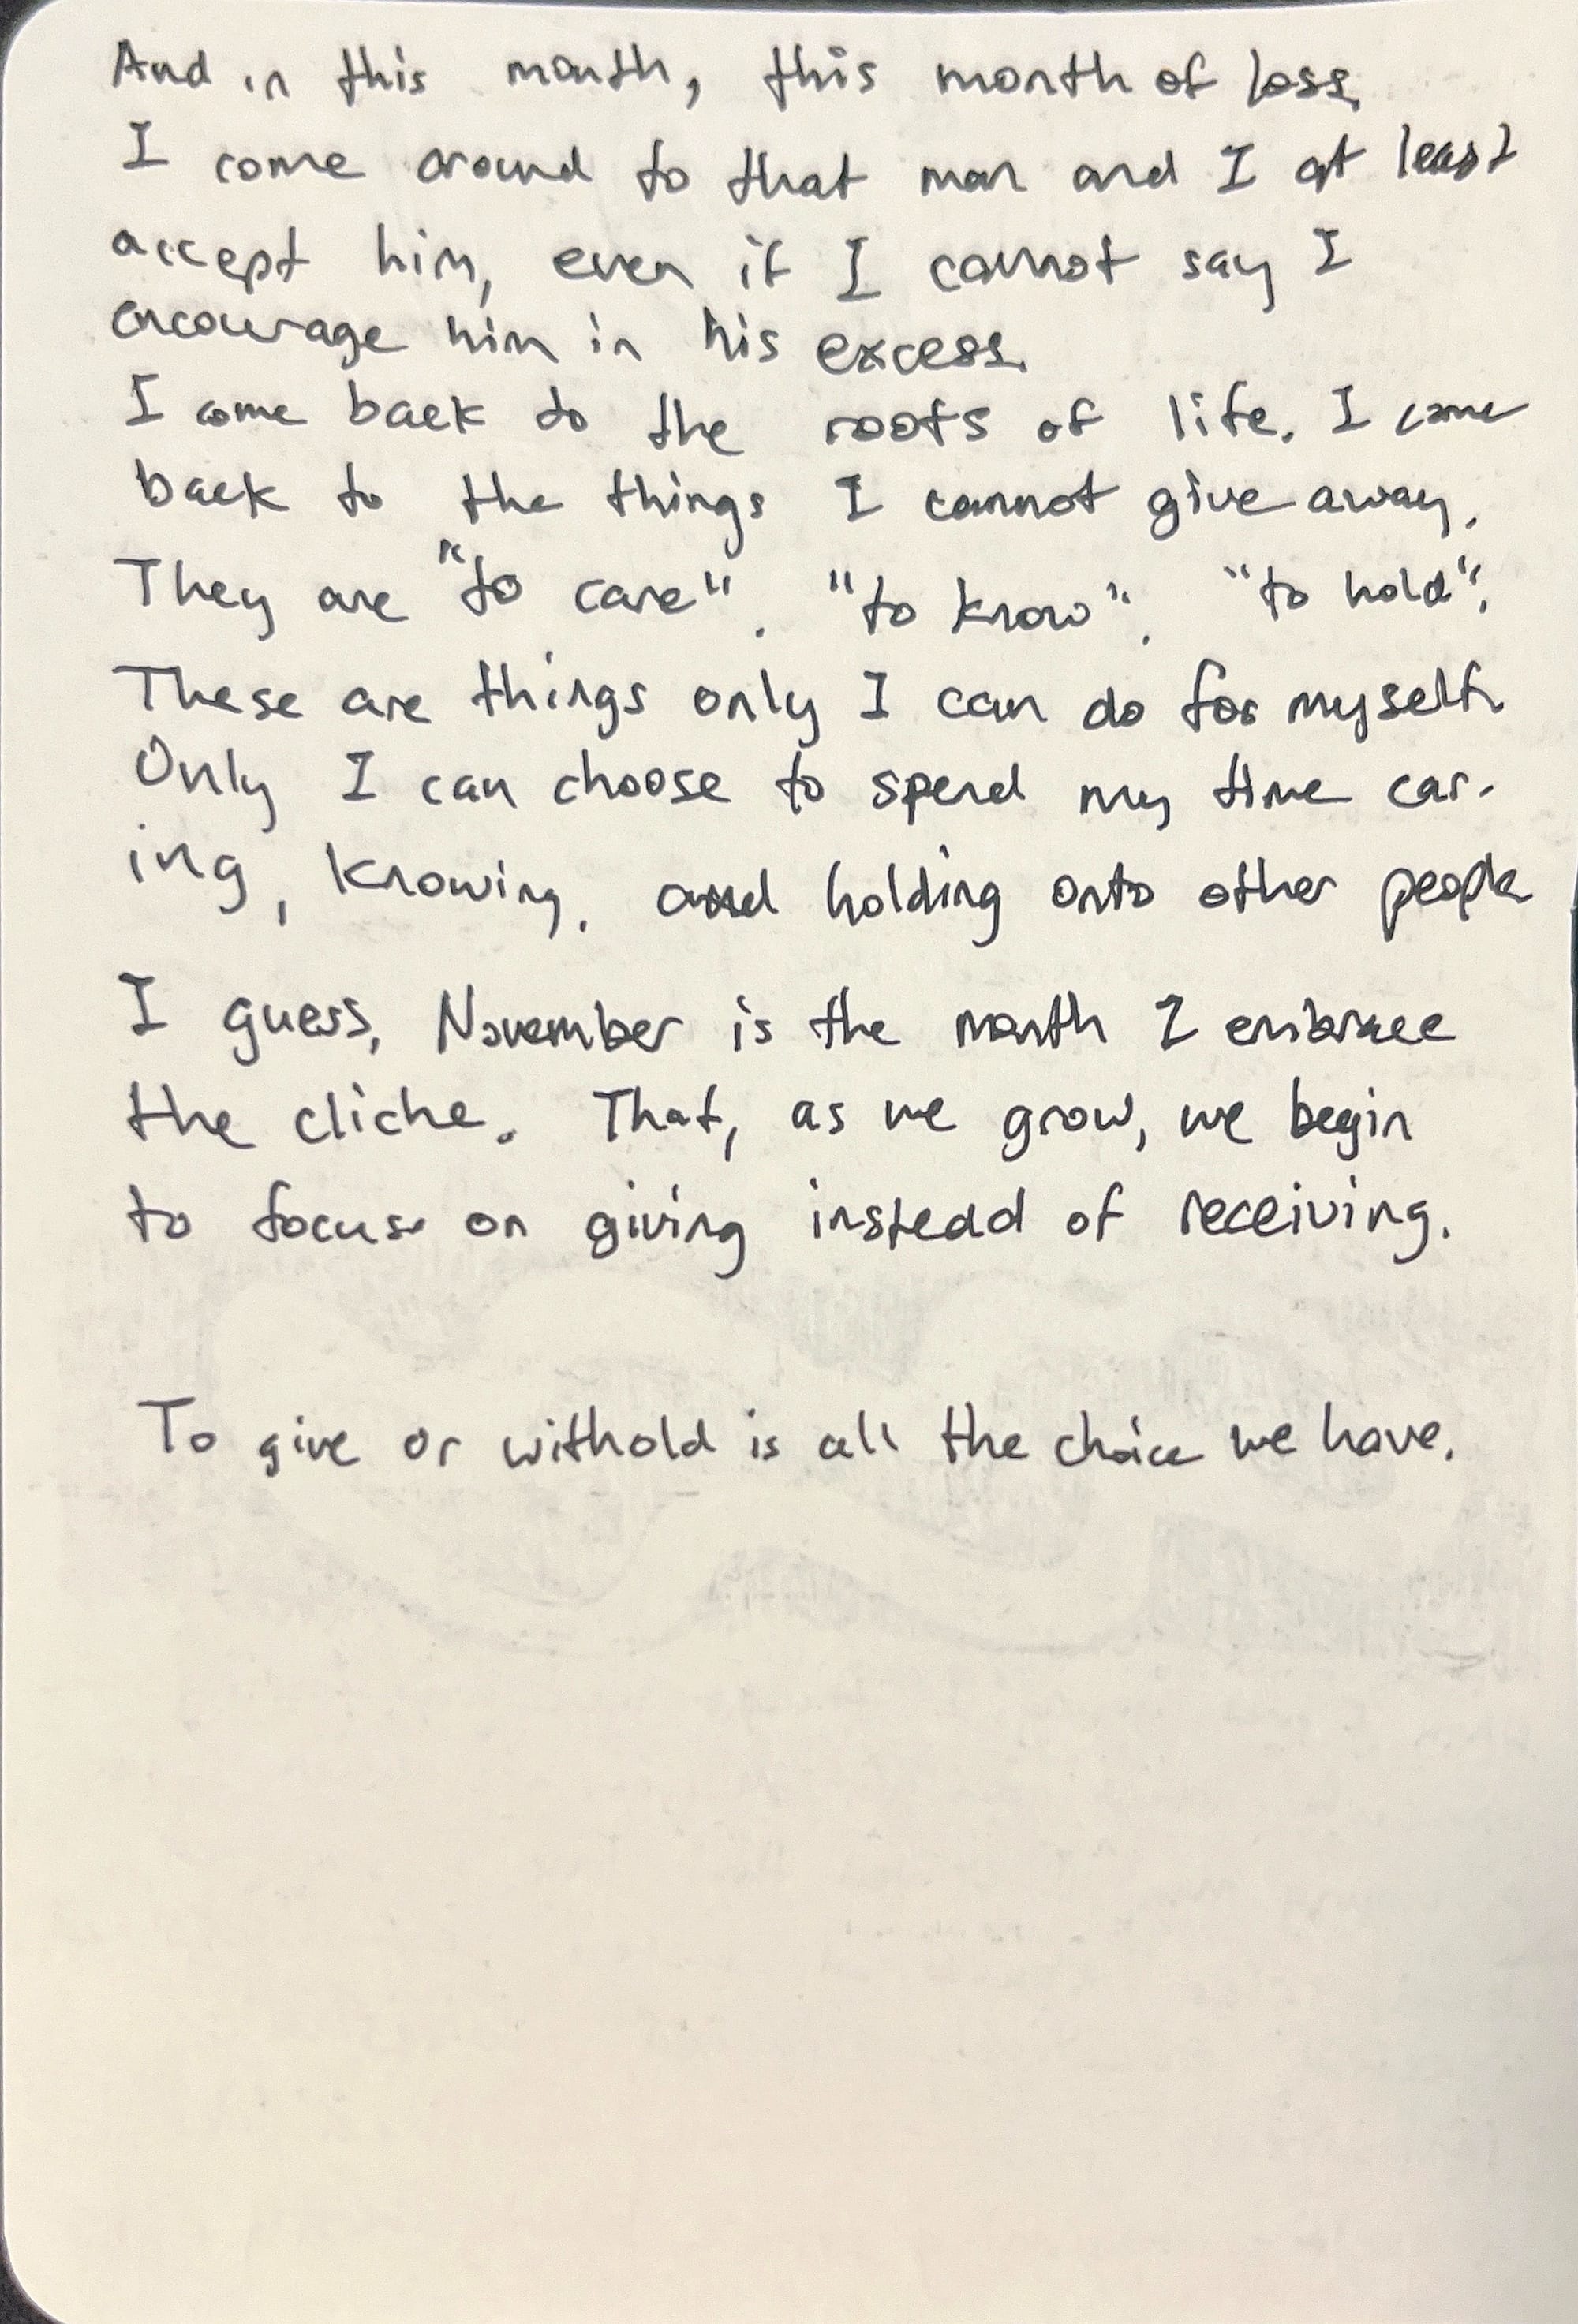 And in this month, this month of loss,
I come around to that man and I at least
accept him, even if I cannot say I
encourage him in his excess.
I come back to the roots of life. I come
back to the things I cannot give away.
They are "to care". "to know". "to hold".
These are things only I can do for myself.
Only I can choose to spend my time car-
ing, knowing, and holding onto other people
I guess, November is the month I embrace
the cliche. That, as we grow, we begin
to focus on giving instead of receiving.
To give or withold is all the choice we have.